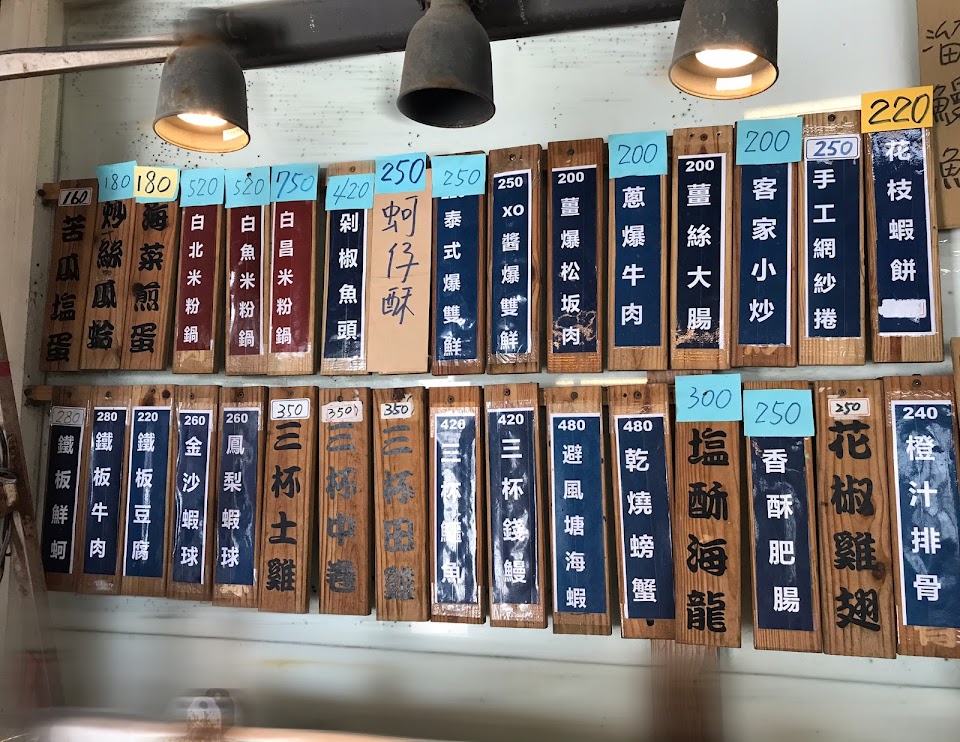 160
苦瓜塩蛋
180
炒絲瓜蛤
180
海菜煎蛋
520
白北米粉鍋
520
白魚米粉鍋
750
白昌米粉鍋
420
剁椒魚頭
250
蚵仔酥
250
泰式爆雙鮮
250
XO醬爆雙鮮
200
薑爆松坂肉
200
蔥爆牛肉
200
薑絲大腸
200
客家小炒
250
手工網紗捲
220
花枝蝦餅
280
鐵板鮮蚵
280
鐵板牛肉
220
鐵板豆腐
260
金沙蝦球
260
鳳梨蝦球
350
三杯土雞
350
三杯中卷
350
三杯田雞
420
三杯魚
420
三杯錢鰻
480
避風塘海蝦
480
乾燒螃蟹
300
塩酥海龍
250
香酥肥腸
250
花椒雞翅
240
橙汁排骨